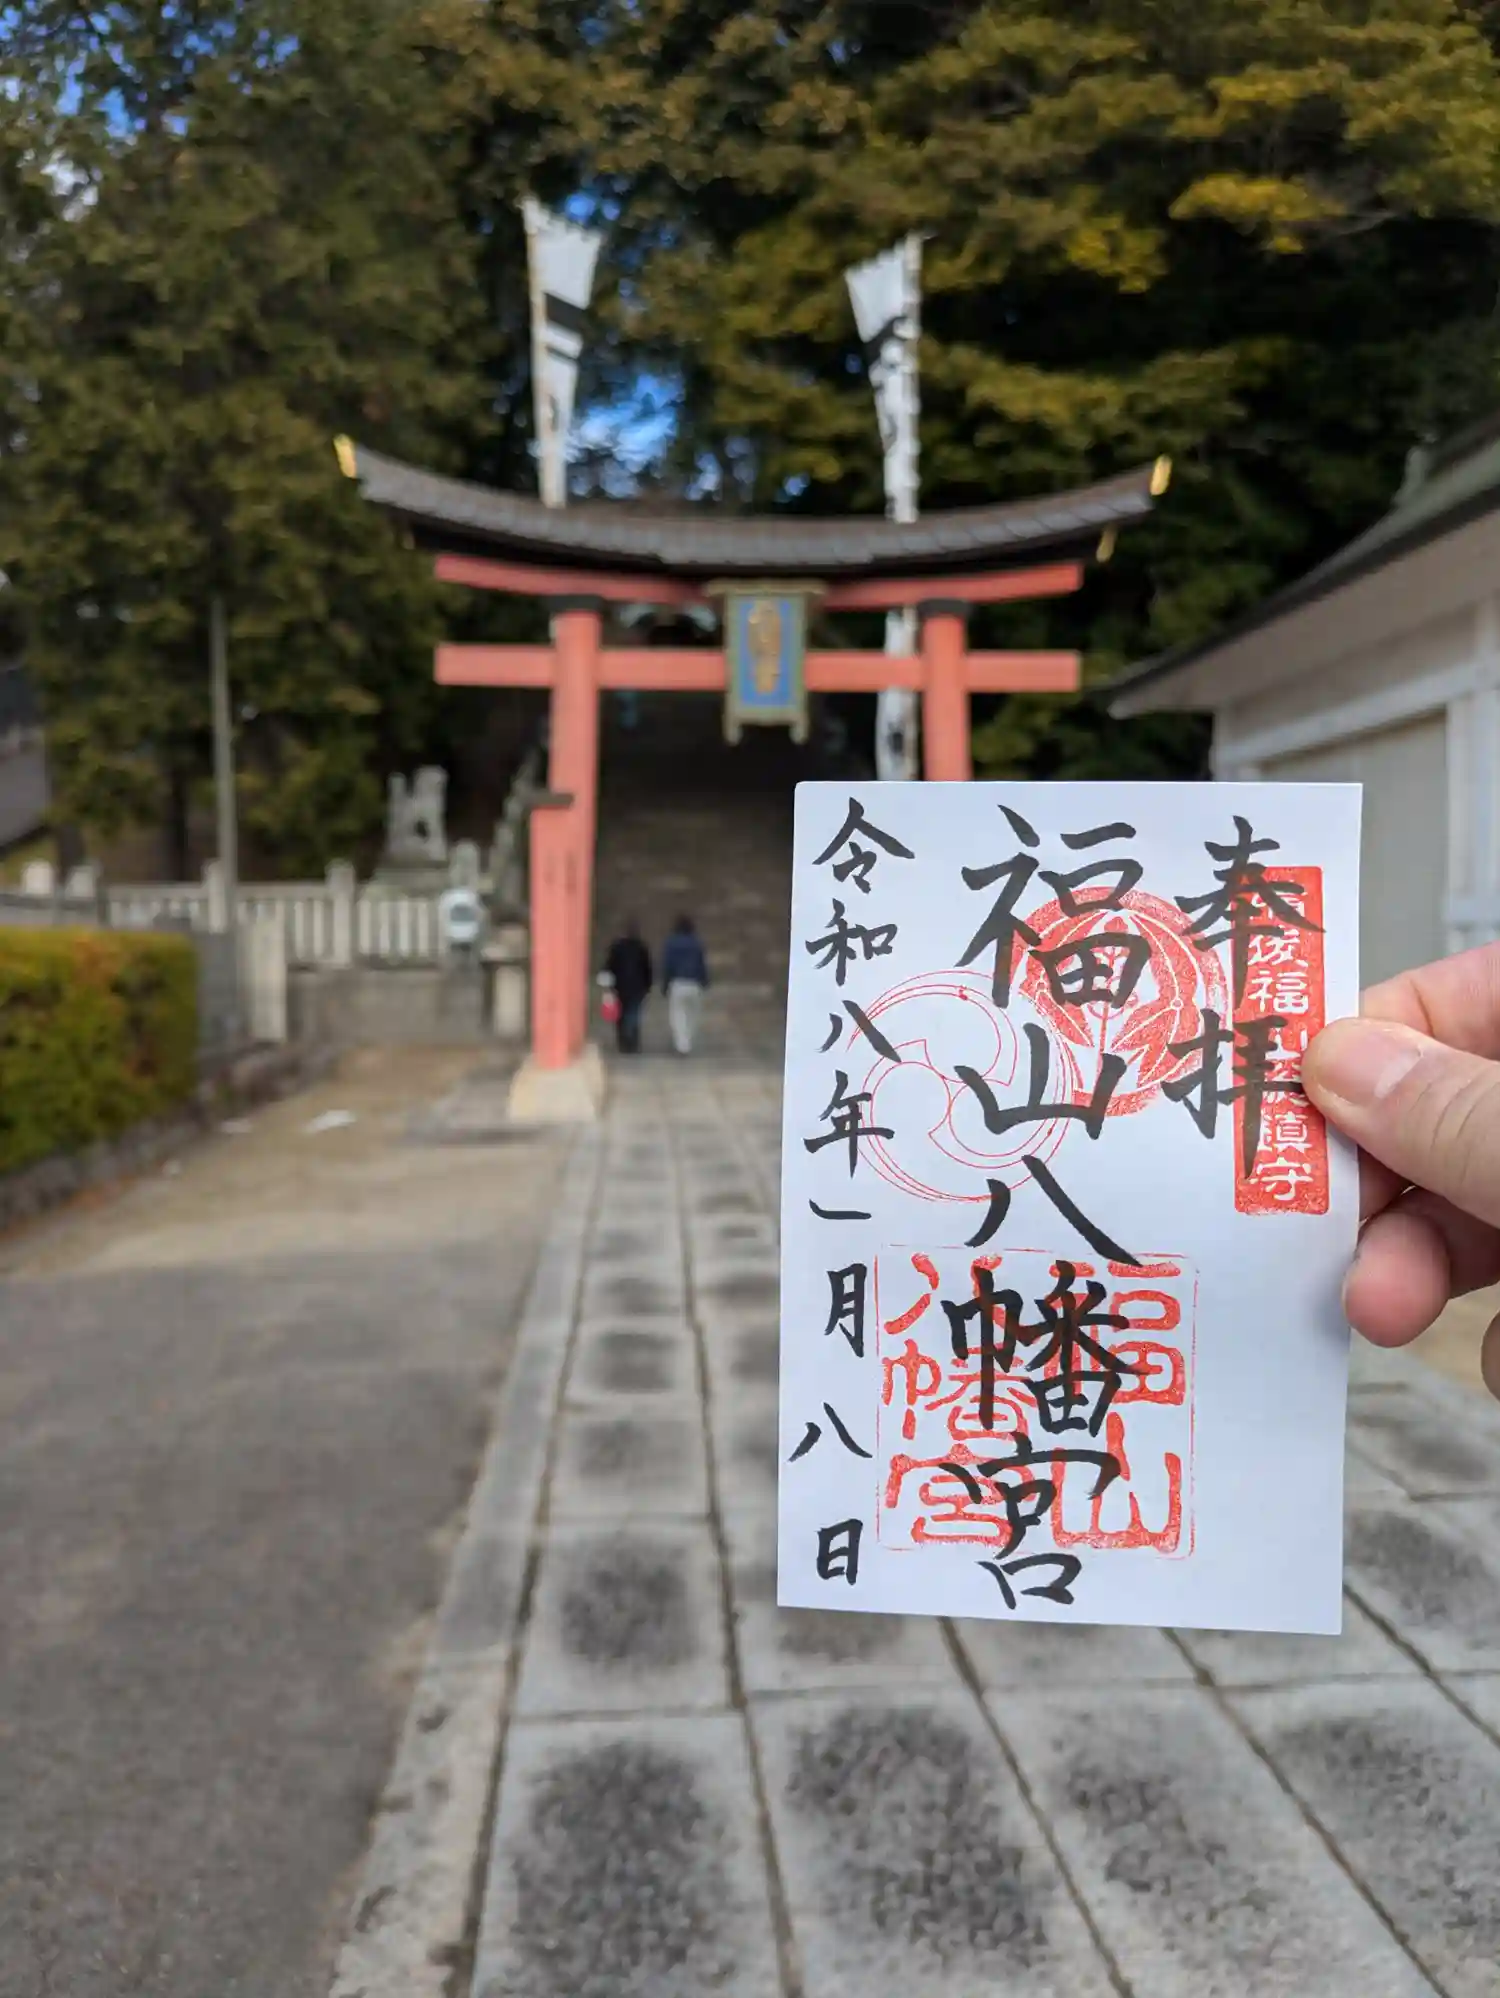 奉拝
備後福山総鎮守
福山八幡宮
福山
八幡宮
令和八年一月八日